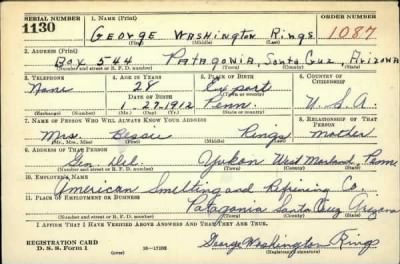 SERIAL NUMBER 1. NAME (Print) ORDER NUMBER
1130 GEORGE WASHINGTON RINGS 1087
(First) (Middle) (Last)
2. ADDRESS (Print)
BOX 544 PATAGONIA, SANTA CRUZ, ARIZONA
(Number and street or R. F. D. number) (Town) (County) (State)
3. TELEPHONE 4. AGE IN YEARS 5. PLACE OF BIRTH 6. COUNTRY OF CITIZENSHIP
None 28 Export
DATE OF BIRTH
1-27-1912 Penn. U.S.A.
(Exchange) (Number) (Mo.) (Day) (Yr.) (State or country)
7. NAME OF PERSON WHO WILL ALWAYS KNOW YOUR ADDRESS 8. RELATIONSHIP OF THAT PERSON
Mrs. Bessie Rings Mother
(Mr., Mrs., Miss) (First) (Middle) (Last)
9. ADDRESS OF THAT PERSON
Gen. Del. Yukon West Moreland, Penn.
(Number and street or R. F. D. number) (Town) (County) (State)
10. EMPLOYER'S NAME
American Smelting and Refining Co.
11. PLACE OF EMPLOYMENT OR BUSINESS
Patagonia Santa Cruz Arizona
(Number and street or R. F. D. number) (Town) (County) (State)
I AFFIRM THAT I HAVE VERIFIED ABOVE ANSWERS AND THAT THEY ARE TRUE.
REGISTRATION CARD
D. S. S. Form 1 (over) 16-17105 George Washington Rings